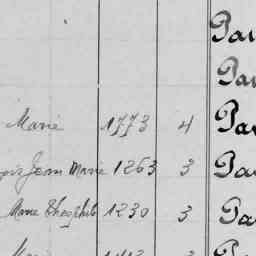 Pau
Pau
Marie 1773 4 Pau
Jean Marie 1263 3 Pau
Marie Théophile 1230 3 Pau